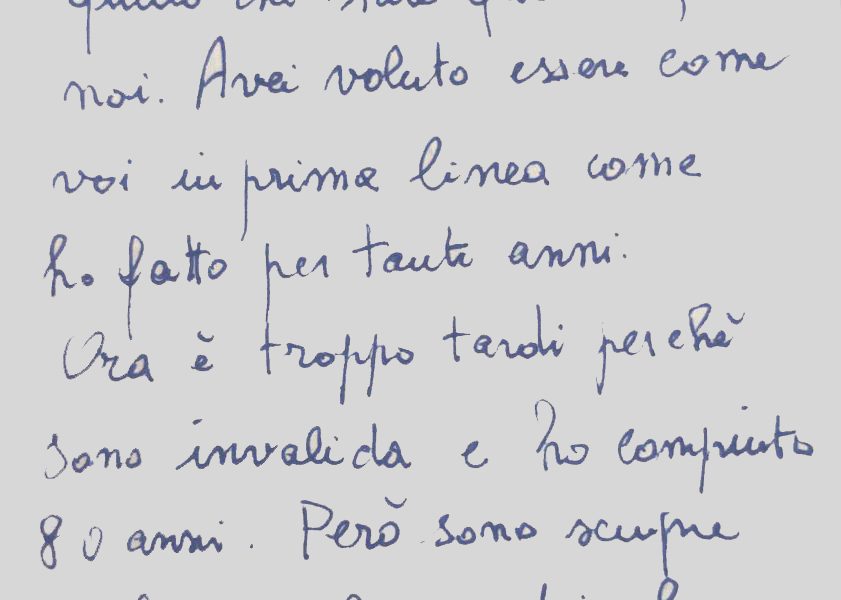 noi. Avei voluto essere come
voi in prima linea come
ho fatto per tanti anni.
Ora è troppo tardi perchè
sono invalida e ho compiuto
80 anni. Però sono sempre